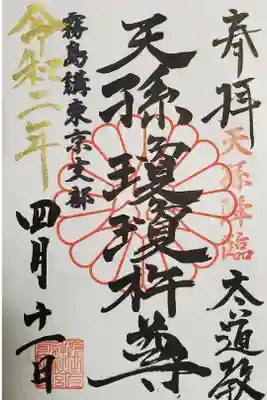 奉拝
天孫降臨
太道教
天孫瓊瓊杵尊
霧島講東京支部
令和二年
四月十一日